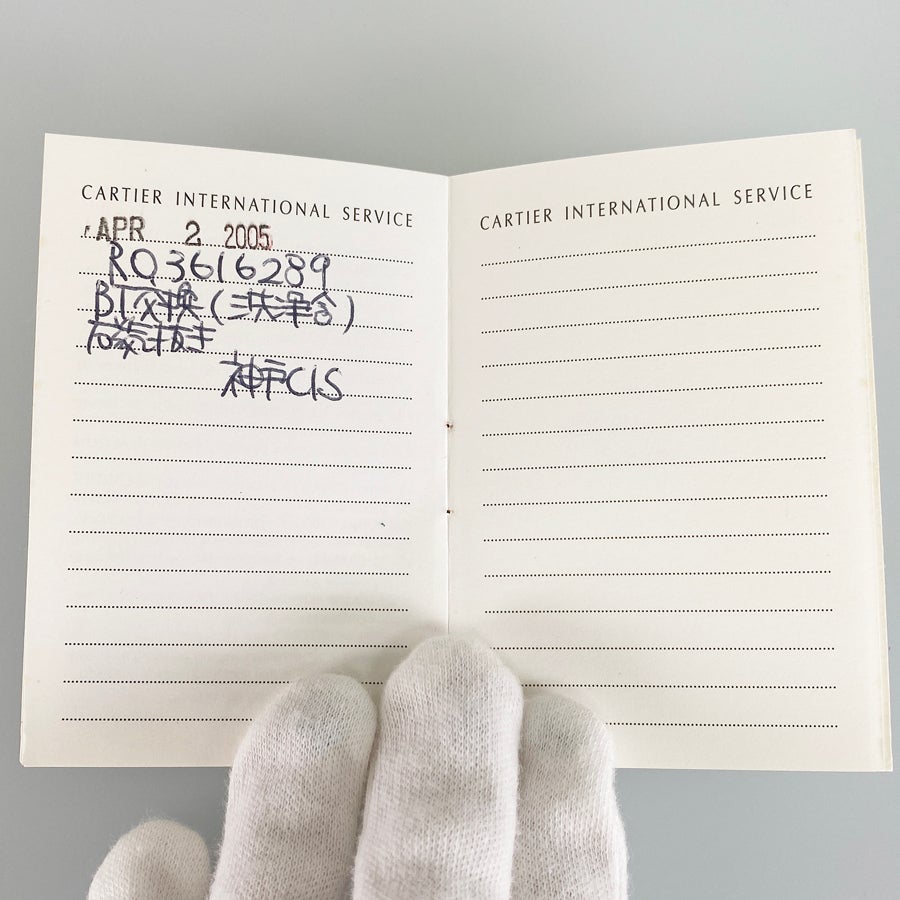 CARTIER INTERNATIONAL SERVICE
APR 2 2005
RQ3616289
BT交換(洗浄含)
磁気抜き
神戸CIS
CARTIER INTERNATIONAL SERVICE